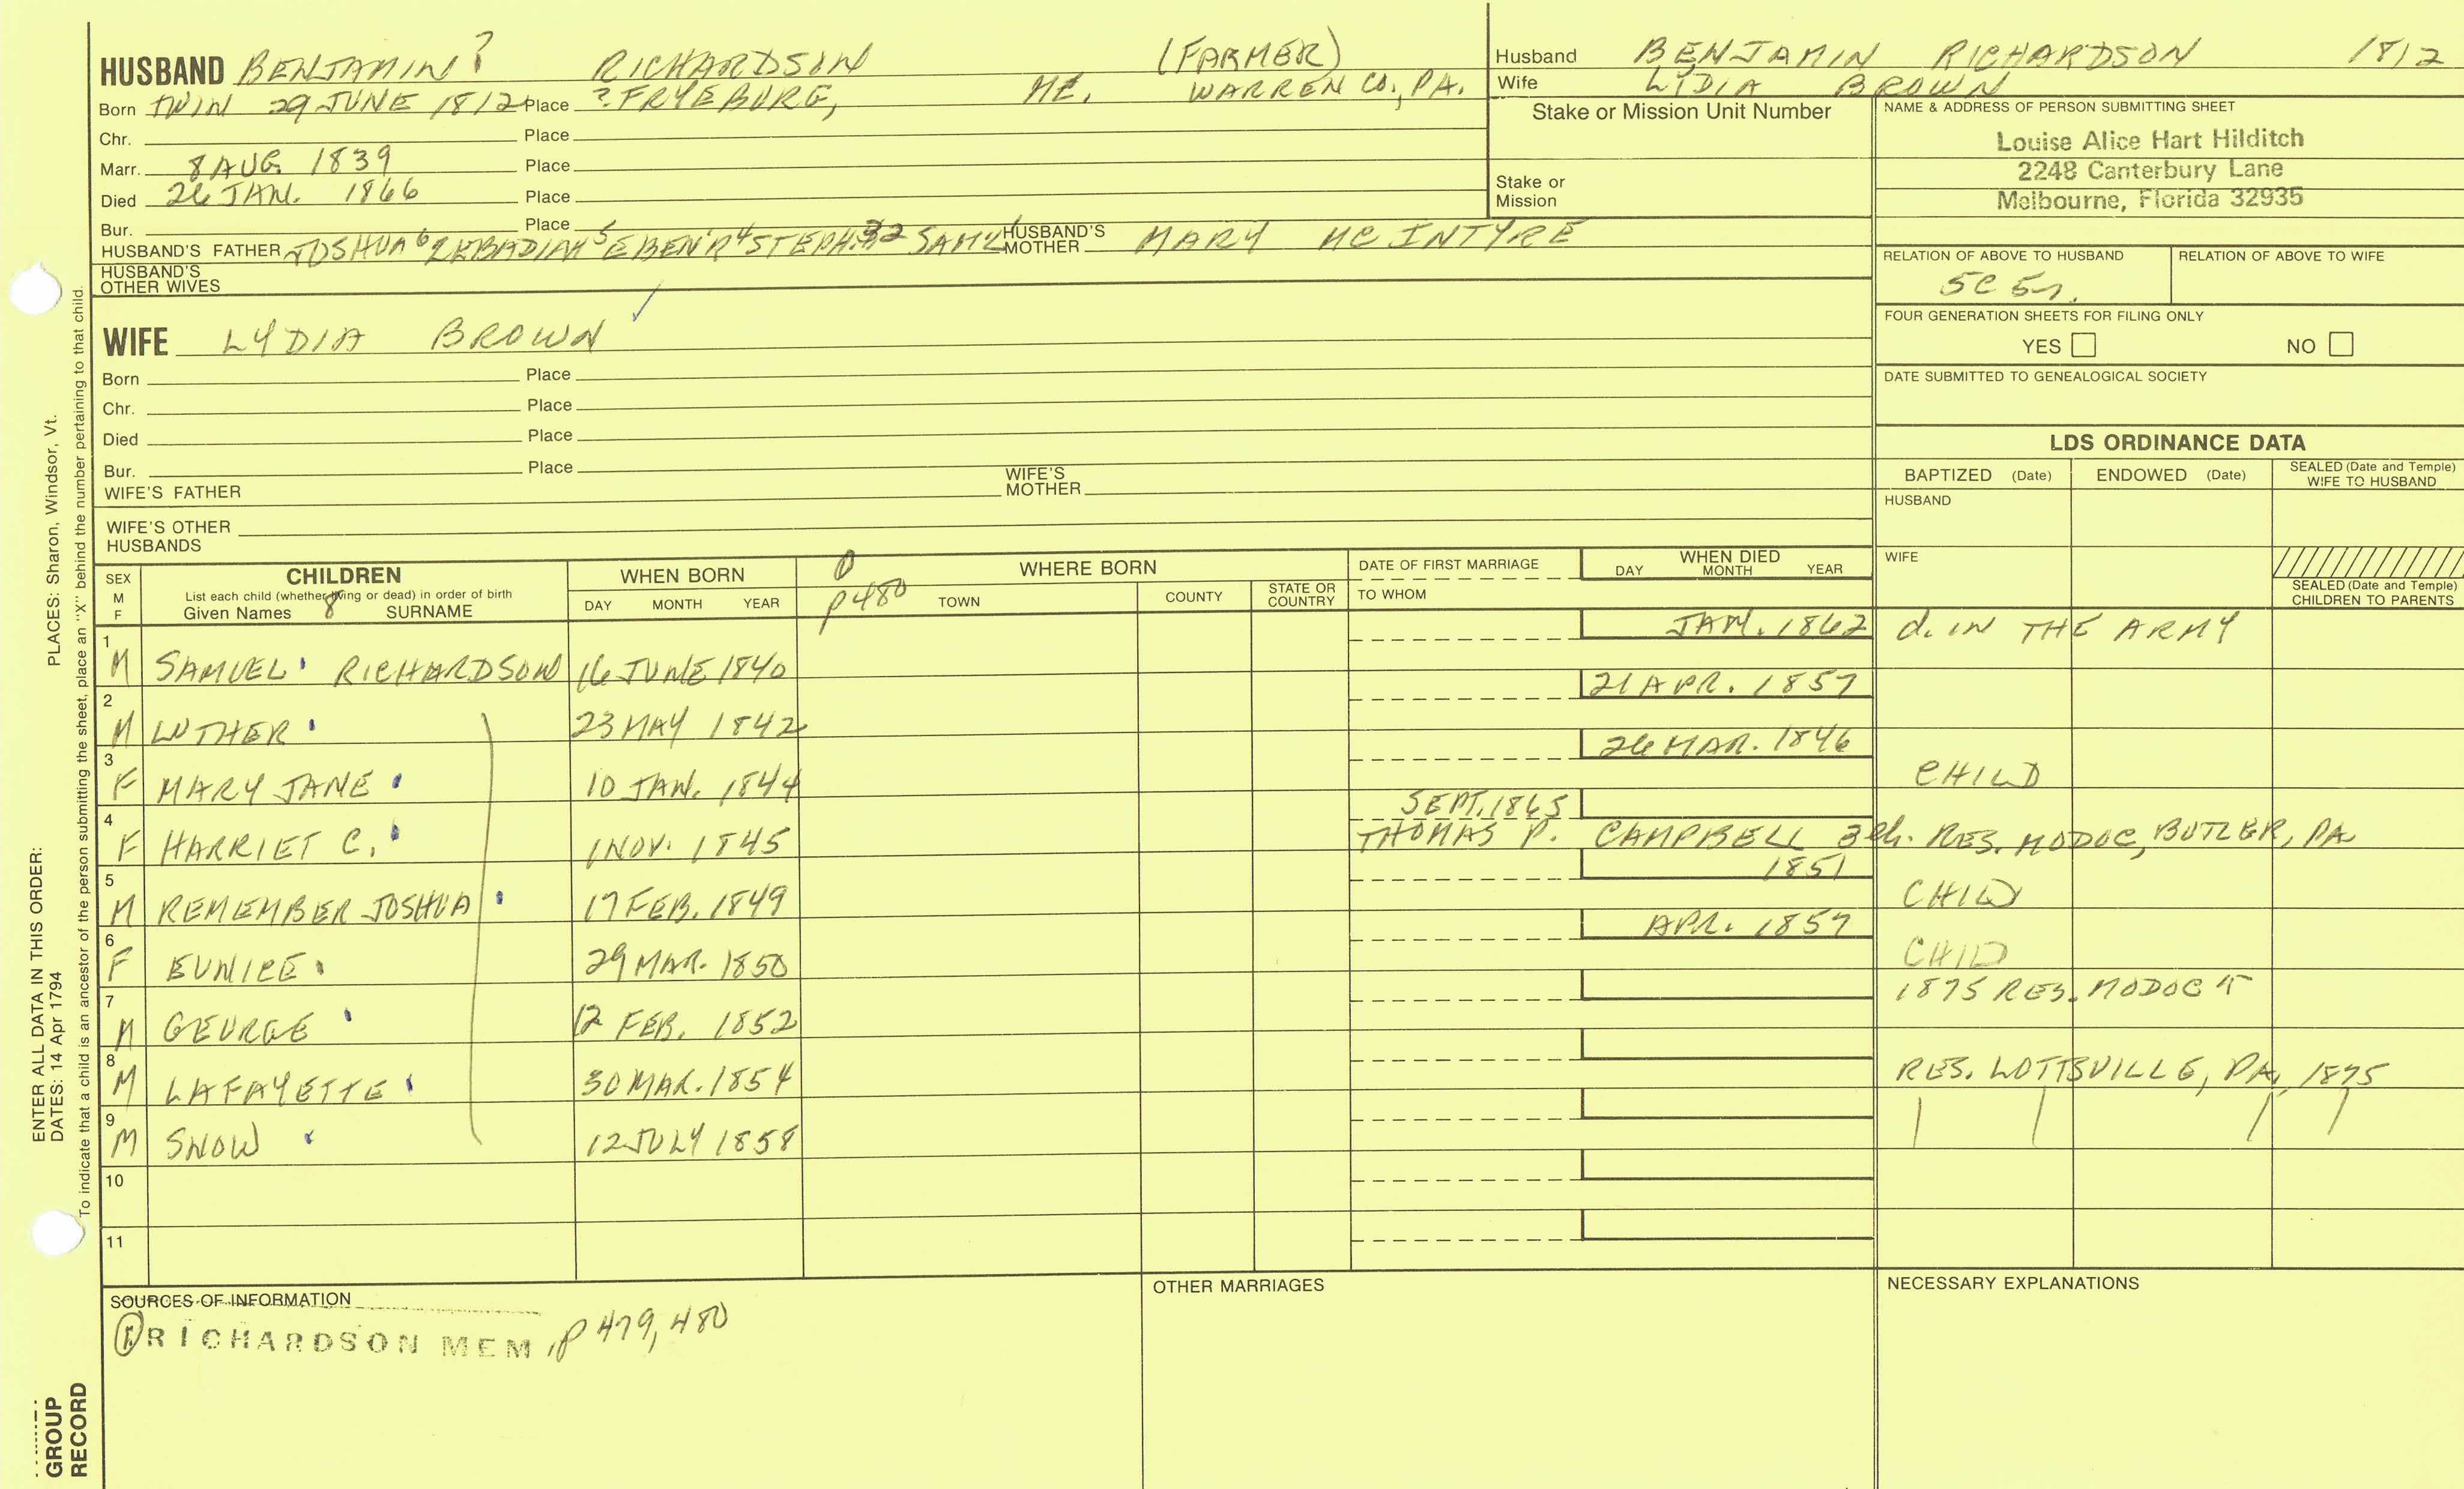 HUSBAND BENJAMIN 7 RICHARDSON (FARMER)
Born TWIN 29 JUNE 1812 Place ? FRYEBURG, ME. WARREN CO., PA.
Chr. Place
Marr. 8 AUG. 1839 Place
Died 26 JAN. 1866 Place
Bur. Place
HUSBAND'S FATHER JOSHUA 6 ZEBADIAH 5 EBEN'R 4 STEPH. 2 SAML HUSBAND'S MOTHER MARY MC INTYRE
HUSBAND'S OTHER WIVES
Husband BENJAMIN RICHARDSON 1812
Wife LYDIA BROWN
Stake or Mission Unit Number
Stake or Mission
NAME & ADDRESS OF PERSON SUBMITTING SHEET
Louise Alice Hart Hilditch
2248 Canterbury Lane
Melbourne, Florida 32935
RELATION OF ABOVE TO HUSBAND RELATION OF ABOVE TO WIFE
5C 5r.
FOUR GENERATION SHEETS FOR FILING ONLY
YES NO
DATE SUBMITTED TO GENEALOGICAL SOCIETY
WIFE LYDIA BROWN
Born Place
Chr. Place
Died Place
Bur. Place
WIFE'S FATHER WIFE'S MOTHER
WIFE'S OTHER HUSBANDS
LDS ORDINANCE DATA
BAPTIZED (Date) ENDOWED (Date) SEALED (Date and Temple) WIFE TO HUSBAND
HUSBAND
WIFE
SEALED (Date and Temple) CHILDREN TO PARENTS
SEX M F
CHILDREN
List each child (whether living or dead) in order of birth
Given Names 8 SURNAME
WHEN BORN
DAY MONTH YEAR
p480
WHERE BORN
TOWN COUNTY STATE OR COUNTRY
DATE OF FIRST MARRIAGE
TO WHOM
WHEN DIED
DAY MONTH YEAR
1 M SAMUEL RICHARDSON 16 JUNE 1840 JAN. 1862 d. IN THE ARMY
2 M LUTHER 23 MAY 1842 21 APR. 1857
3 F MARY JANE 10 JAN. 1844 26 MAR. 1846 CHILD
4 F HARRIET C. 1 NOV. 1845 SEPT. 1865
THOMAS P. CAMPBELL 3 ch. RES. MODOC, BUTLER, PA
5 M REMEMBER JOSHUA 17 FEB. 1849 1851 CHILD
6 F EUNICE 29 MAR. 1850 APR. 1857 CHILD
7 M GEORGE 12 FEB. 1852 1875 RES. MODOC
8 M LAFAYETTE 30 MAR. 1854 RES. LOTTSVILLE, PA, 1875
9 M SNOW 12 JULY 1858
10
11
SOURCES OF INFORMATION
RICHARDSON MEM, p 479, 480
OTHER MARRIAGES
NECESSARY EXPLANATIONS
ENTER ALL DATA IN THIS ORDER:
DATES: 14 Apr 1794
PLACES: Sharon, Windsor, Vt.
To indicate that a child is an ancestor of the person submitting the sheet, place an "X" behind the number pertaining to that child.
GROUP
RECORD